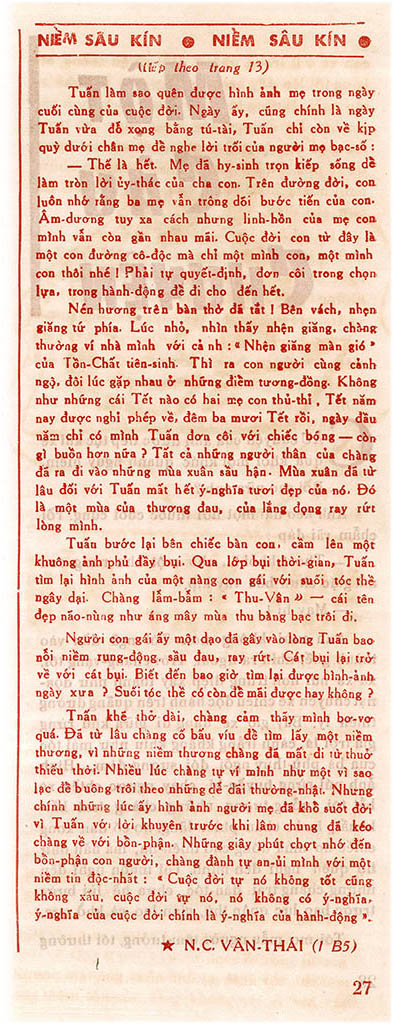 NIỀM SÂU KÍN ● NIỀM SÂU KÍN ●
(tiếp theo trang 13)
Tuấn làm sao quên được hình ảnh mẹ trong ngày
cuối cùng của cuộc đời. Ngày ấy, cũng chính là ngày
Tuấn vừa đỗ xong bằng tú-tài, Tuấn chỉ còn về kịp
quỳ dưới chân mẹ để nghe lời trối của người mẹ bạc-số :
— Thế là hết. Mẹ đã hy-sinh trọn kiếp sống để
làm tròn lời ủy-thác của cha con. Trên đường đời, con
luôn nhớ rằng ba mẹ vẫn trông dõi bước tiến của con.
Âm-dương tuy xa cách nhưng linh-hồn của mẹ con
mình vẫn còn gần nhau mãi. Cuộc đời con từ đây là
một con đường cô-độc mà chỉ một mình con, một mình
con thôi nhé ! Phải tự quyết-định, đơn côi trong chọn
lựa, trong hành-động để đi cho đến hết.
Nén hương trên bàn thờ đã tắt ! Bên vách, nhẹn
giăng tứ phía. Lúc nhỏ, nhìn thấy nhện giăng, chàng
thường ví nhà mình với cảnh : « Nhện giăng màn gió »
của Tồn-Chất tiên-sinh. Thì ra con người cùng cảnh
ngộ, đôi lúc gặp nhau ở những điểm tương-đồng. Không
như những cái Tết nào có hai mẹ con thủ-thỉ, Tết năm
nay được nghỉ phép về, đêm ba mươi Tết rồi, ngày đầu
năm chỉ có mình Tuấn đơn côi với chiếc bóng — còn
gì buồn hơn nữa ? Tất cả những người thân của chàng
đã ra đi vào những mùa xuân sầu hận. Mùa xuân đã từ
lâu đối với Tuấn mất hết ý-nghĩa tươi đẹp của nó. Đó
là một mùa của thương đau, của lắng đọng ray rứt
lòng mình.
Tuấn bước lại bên chiếc bàn con, cầm lên một
khuông ảnh phủ đầy bụi. Qua lớp bụi thời-gian, Tuấn
tìm lại hình ảnh của một nàng con gái với suối tóc thề
ngây dại. Chàng lẩm-bẩm : « Thu-Vân » — cái tên
đẹp não-nùng như áng mây mùa thu bàng bạc trôi đi.
Người con gái ấy một dạo đã gây vào lòng Tuấn bao
nỗi niềm rung-động, sầu đau, ray rứt. Cát bụi lại trở
về với cát bụi. Biết đến bao giờ tìm lại được hình-ảnh
ngày xưa ? Suối tóc thề có còn để mãi được hay không ?
Tnấn khẽ thở dài, chàng cảm thấy mình bơ-vơ
quá. Đã từ lâu chàng cố bấu víu để tìm lấy một niềm
thương, vì những niềm thương chàng đã mất đi từ thuở
thiếu thời. Nhiều lúc chàng tự ví mình như một vì sao
lạc để buông trôi theo những dễ dãi thường-nhật. Nhưng
chính những lúc ấy hình ảnh người mẹ đã khổ suốt đời
vì Tuấn với lời khuyên trước khi lâm chung đã kéo
chàng về với bổn-phận. Những giây phút chợt nhớ đến
bổn-phận con người, chàng đành tự an-ủi mình với một
niềm tin độc-nhất : « Cuộc đời tự nó không tốt cũng
không xấu, cuộc đời tự nó, nó không có ý-nghĩa,
ý-nghĩa của cuộc đời chính là ý-nghĩa của hành-động ».
★ N.C. VÂN-THÁI (1 B5)
27